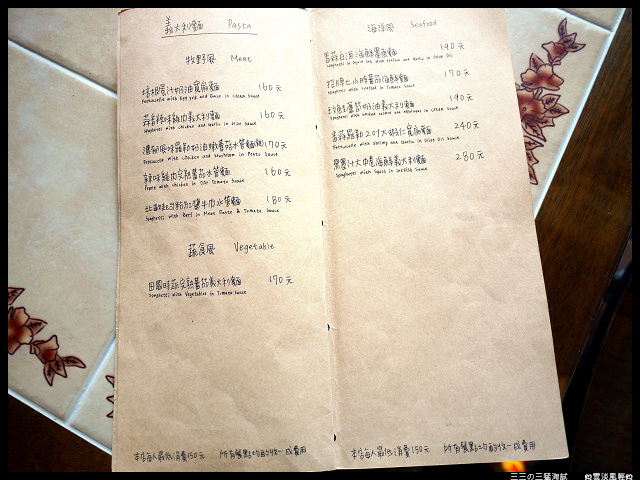 義大利麵 Pasta
牧野風 Meat
培根蛋汁奶油寬扁麵 160元
Fettuccelle with Egg yolk and Bacon in Cream Sauce
蒜香辣味雞肉義大利麵 160元
Spaghetti with Chicken and Garlic in Olive Sauce
濃郁風味羅勒奶油嫩雞水管麵 170元
Fettuccelle with Chicken and Mushroom in Pesto Sauce
辣味雞肉完熟蕃茄水管麵 160元
Penne with Chicken in Tomato Sauce
牛肉水管麵 180元
Spaghetti with Beef in Meat Paste & Tomato Sauce
蔬食風 Vegetable
田園時蔬完熟蕃茄義大利麵 170元
Spaghetti with Vegetables in Tomato Sauce
本店每人最低消費150元 所有餐點均酌收一成費用
海洋風 Seafood
香蒜白酒海鮮墨魚麵 190元
七小時蕃茄海鮮麵 170元
Spaghetti with Seafood in Tomato Sauce
蘆筍奶油義大利麵 190元
Spaghetti with Smoked Salmon and Asparagus in Cream Sauce
香蒜羅勒 大蝦仁寬扁麵 240元
Fettuccelle with Shrimp and Garlic in Olive Oil Sauce
黑墨汁大中卷海鮮義大利麵 280元
Spaghetti with Squid in Inkfish Sauce
本店每人最低消費150元 所有餐點均酌收一成費用
三三の三猛海賊 雲淡風輕